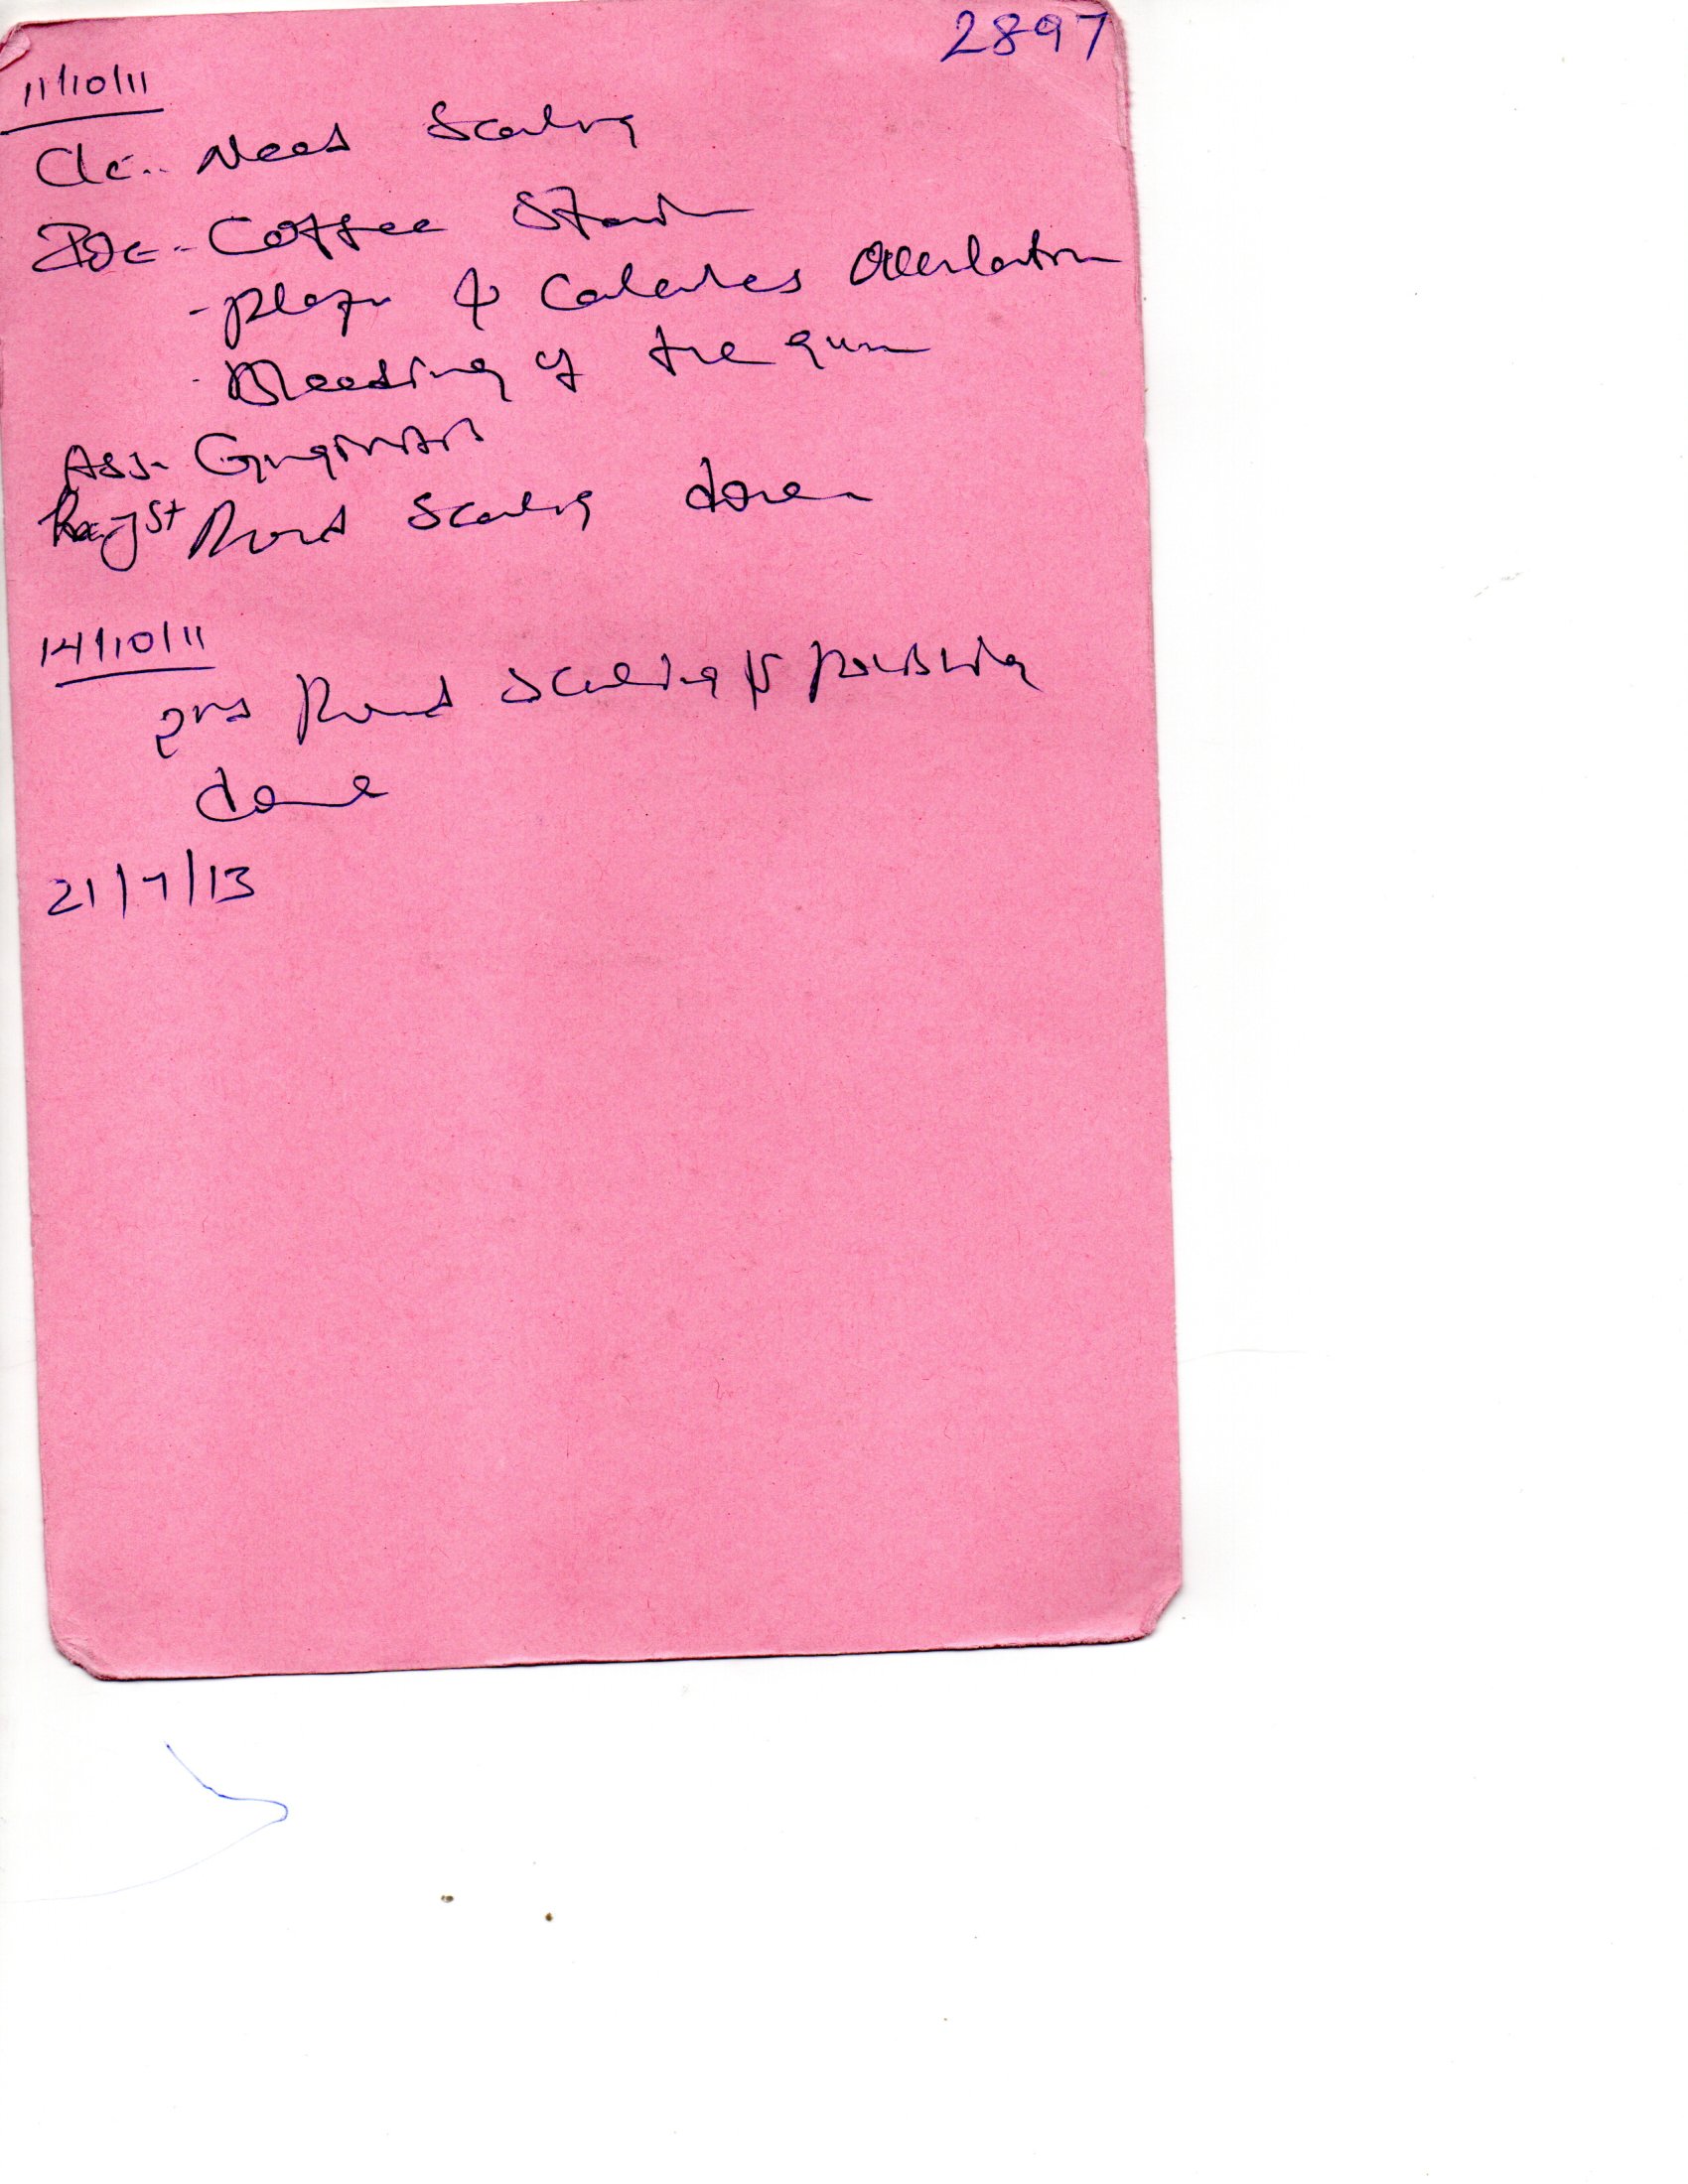 2897
11/10/11
C/c.. Need Scaling
- Coffee Stain
- & Calculus
- Bleeding of the gum
Ass- Gingivitis
1st Round Scaling done
14/10/11
2nd Round Scaling & polishing
done
21/7/13